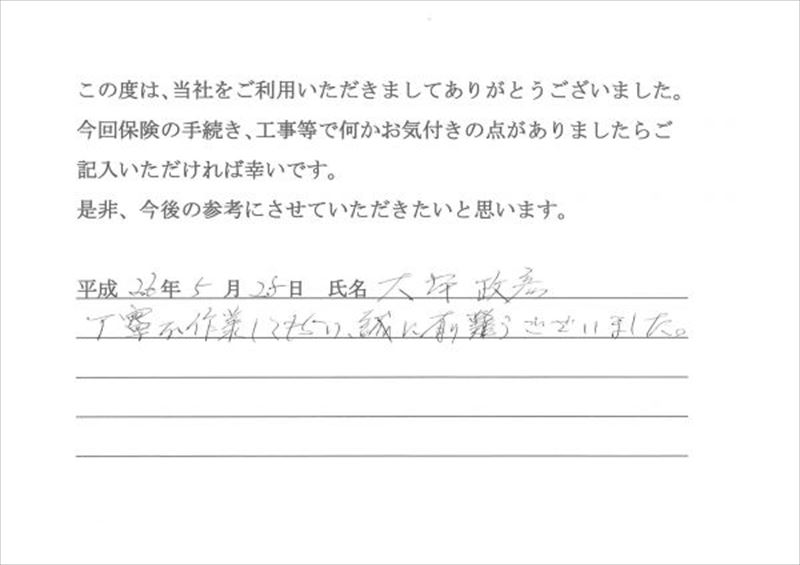 この度は、当社をご利用いただきましてありがとうございました。
今回保険の手続き、工事等で何かお気付きの点がありましたらご
記入いただければ幸いです。
是非、今後の参考にさせていただきたいと思います。
平成 26年 5月 25日 氏名 大坪政彦
丁寧な作業してもらい、誠に有難うございました。